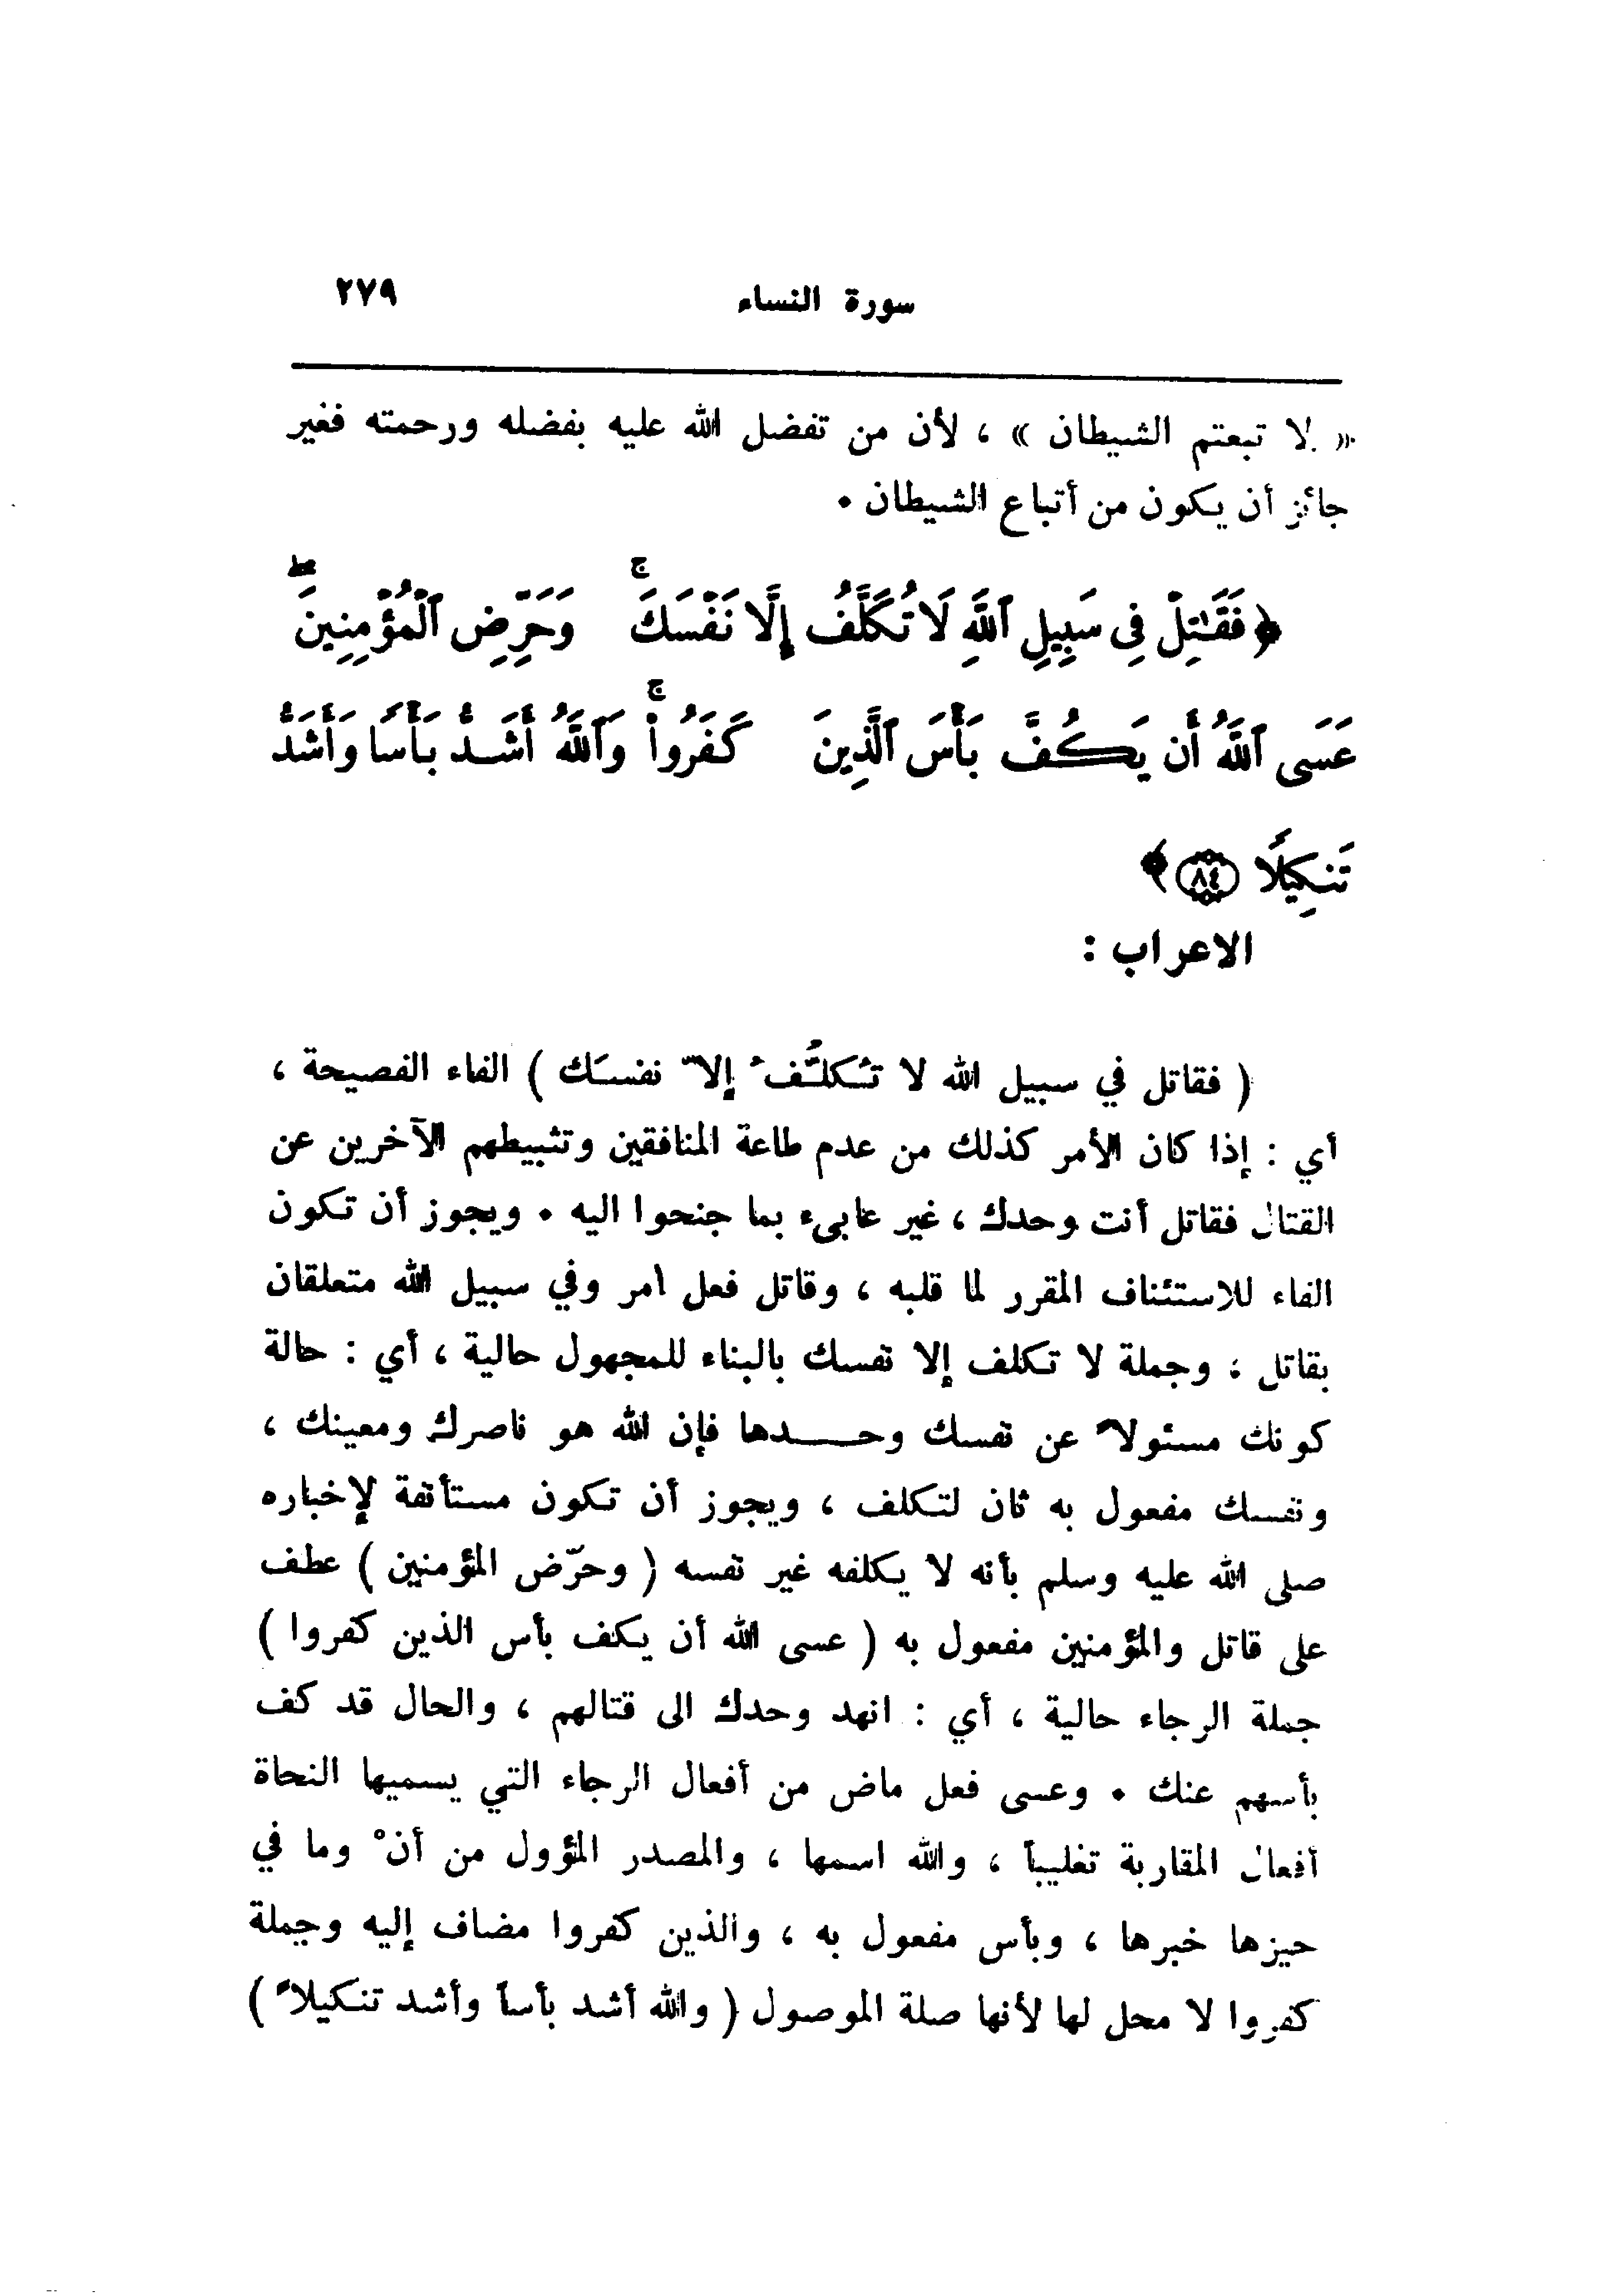 سورة النساء ٢٧٩
« لا تبعتم الشيطان » ، لأن من تفضل الله عليه بفضله ورحمته فغير
جائز أن يكون من أتباع الشيطان .
﴿ فَقَـٰتِلْ فِى سَبِيلِ ٱللَّهِ لَا تُكَلَّفُ إِلَّا نَفْسَكَ ۚ وَحَرِّضِ ٱلْمُؤْمِنِينَ ۖ
عَسَى ٱللَّهُ أَن يَكُفَّ بَأْسَ ٱلَّذِينَ كَفَرُوا۟ ۚ وَٱللَّهُ أَشَدُّ بَأْسًا وَأَشَدُّ
تَنكِيلًا ٨٤ ﴾
الاعراب :
( فقاتل في سبيل الله لا تُكلَّفُ إلاّ نفسَك ) الفاء الفصيحة ،
أي : إذا كان الأمر كذلك من عدم طاعة المنافقين وتثبيطهم الآخرين عن
القتال فقاتل أنت وحدك ، غير عابىء بما جنحوا اليه . ويجوز أن تكون
الفاء للاستئناف المقرر لما قلبه ، وقاتل فعل امر وفي سبيل الله متعلقان
بقاتل ، وجملة لا تكلف إلا نفسك بالبناء للمجهول حالية ، أي : حالة
كونك مسئولاً عن نفسك وحـــدها فإن الله هو ناصرك ومعينك ،
ونفسك مفعول به ثان لتكلف ، ويجوز أن تكون مستأنفة لإخباره
صلى الله عليه وسلم بأنه لا يكلفه غير نفسه ( وحرّض المؤمنين ) عطف
على قاتل والمؤمنين مفعول به ( عسى الله أن يكف بأس الذين كفروا )
جملة الرجاء حالية ، أي : انهد وحدك الى قتالهم ، والحال قد كف
بأسهم عنك . وعسى فعل ماض من أفعال الرجاء التي يسميها النحاة
أفعال المقاربة تغليباً ، والله اسمها ، والمصدر المؤول من أنْ وما في
حيزها خبرها ، وبأس مفعول به ، والذين كفروا مضاف إليه وجملة
كفروا لا محل لها لأنها صلة الموصول ( والله أشد بأساً وأشد تنكيلاً )